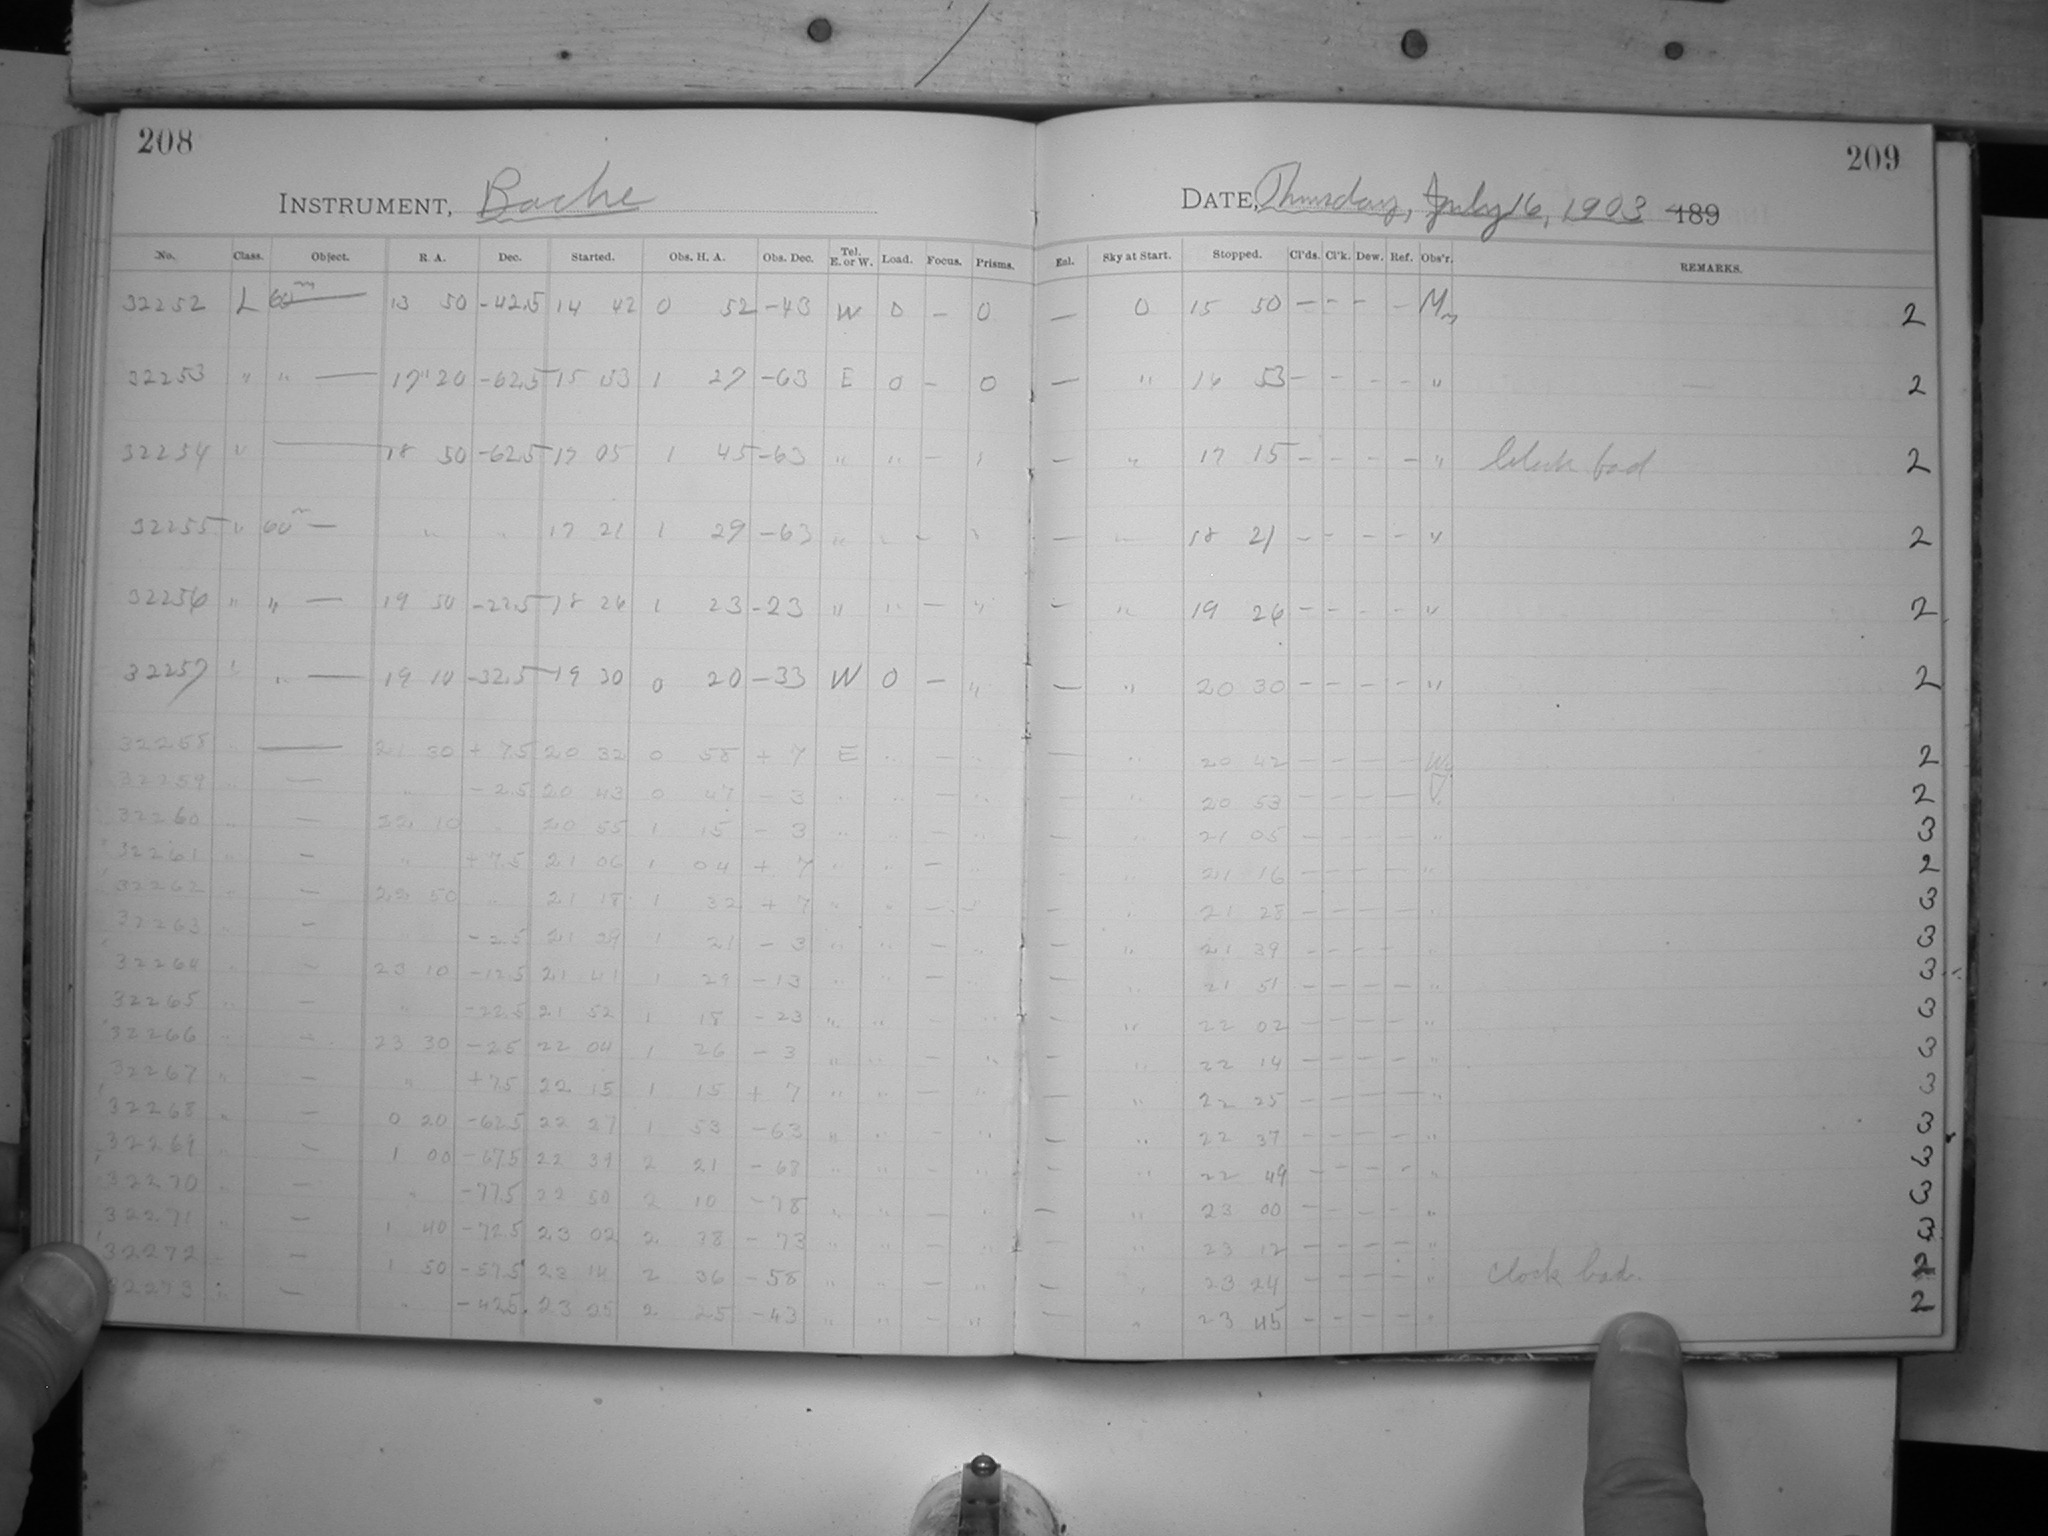 208
209
INSTRUMENT, Bache
DATE, Thursday, July 16, 1903 189
No. Class. Object. R. A. Dec. Started. Obs. H. A. Obs. Dec. Tel. E. or W. Load. Focus. Prisms. Enl. Sky at Start. Stopped. Cl'ds. Cl'k. Dew. Ref. Obs'r. REMARKS.
32252 L 60m — 13 50 -42.5 14 42 0 52 -43 W 0 – 0 — 0 15 50 – – – – M 2
32253 " " — 17 20 -62.5 15 53 1 27 -63 E 0 – 0 — " 16 53 – – – – " 2
32254 " — 18 50 -62.5 17 05 1 45 -63 " " – " — " 17 15 – – – – " Clock bad 2
32255 " 60m — " " 17 21 1 29 -63 " " – " — " 18 21 – – – – " 2
32256 " " — 19 50 -22.5 18 26 1 23 -23 " " – " — " 19 26 – – – – " 2
32257 " " — 19 10 -32.5 19 30 0 20 -33 W 0 – " — " 20 30 – – – – " 2
32258 " — 21 30 +7.5 20 32 0 58 +7 E " – " — " 20 42 – – – – 2
32259 " — " -2.5 20 43 0 47 -3 " " – " — " 20 53 – – – – " 2
32260 " — 22 10 " 20 55 1 15 -3 " " – " — " 21 05 – – – – " 3
32261 " — " +7.5 21 06 1 04 +7 " " – " — " 21 16 – – – – " 2
32262 " — 22 50 " 21 18 1 32 +7 " " – " — " 21 28 – – – – " 3
32263 " — " -2.5 21 29 1 21 -3 " " – " — " 21 39 – – – – " 3
32264 " — 23 10 -12.5 21 41 1 29 -13 " " – " — " 21 51 – – – – " 3
32265 " — " -22.5 21 52 1 18 -23 " " – " — " 22 02 – – – – " 3
32266 " — 23 30 -2.5 22 04 1 26 -3 " " – " — " 22 14 – – – – " 3
32267 " — " +7.5 22 15 1 15 +7 " " – " — " 22 25 – – – – " 3
32268 " — 0 20 -62.5 22 27 1 53 -63 " " – " — " 22 37 – – – – " 3
32269 " — 1 00 -67.5 22 39 2 21 -68 " " – " — " 22 49 – – – – " 3
32270 " — " -77.5 22 50 2 10 -78 " " – " — " 23 00 – – – – " 3
32271 " — 1 40 -72.5 23 02 2 38 -73 " " – " — " 23 12 – – – – " 3
32272 " — 1 50 -57.5 23 14 2 36 -58 " " – " — " 23 24 – – – – " clock bad. 2
32273 " — " -42.5 23 25 2 25 -43 " " – " — " 23 45 – – – – " 2